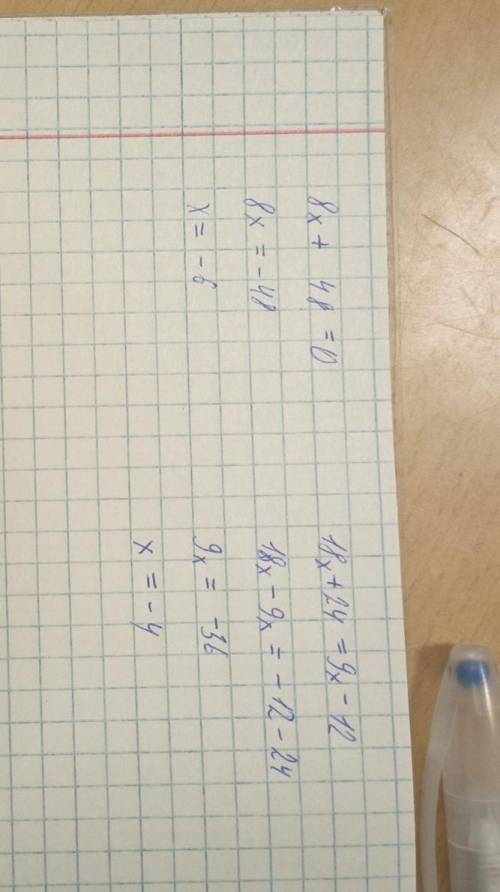 8x + 48 = 0
8x = -48
x = -6
18x + 24 = 9x - 12
18x - 9x = -12 - 24
9x = -36
x = -4